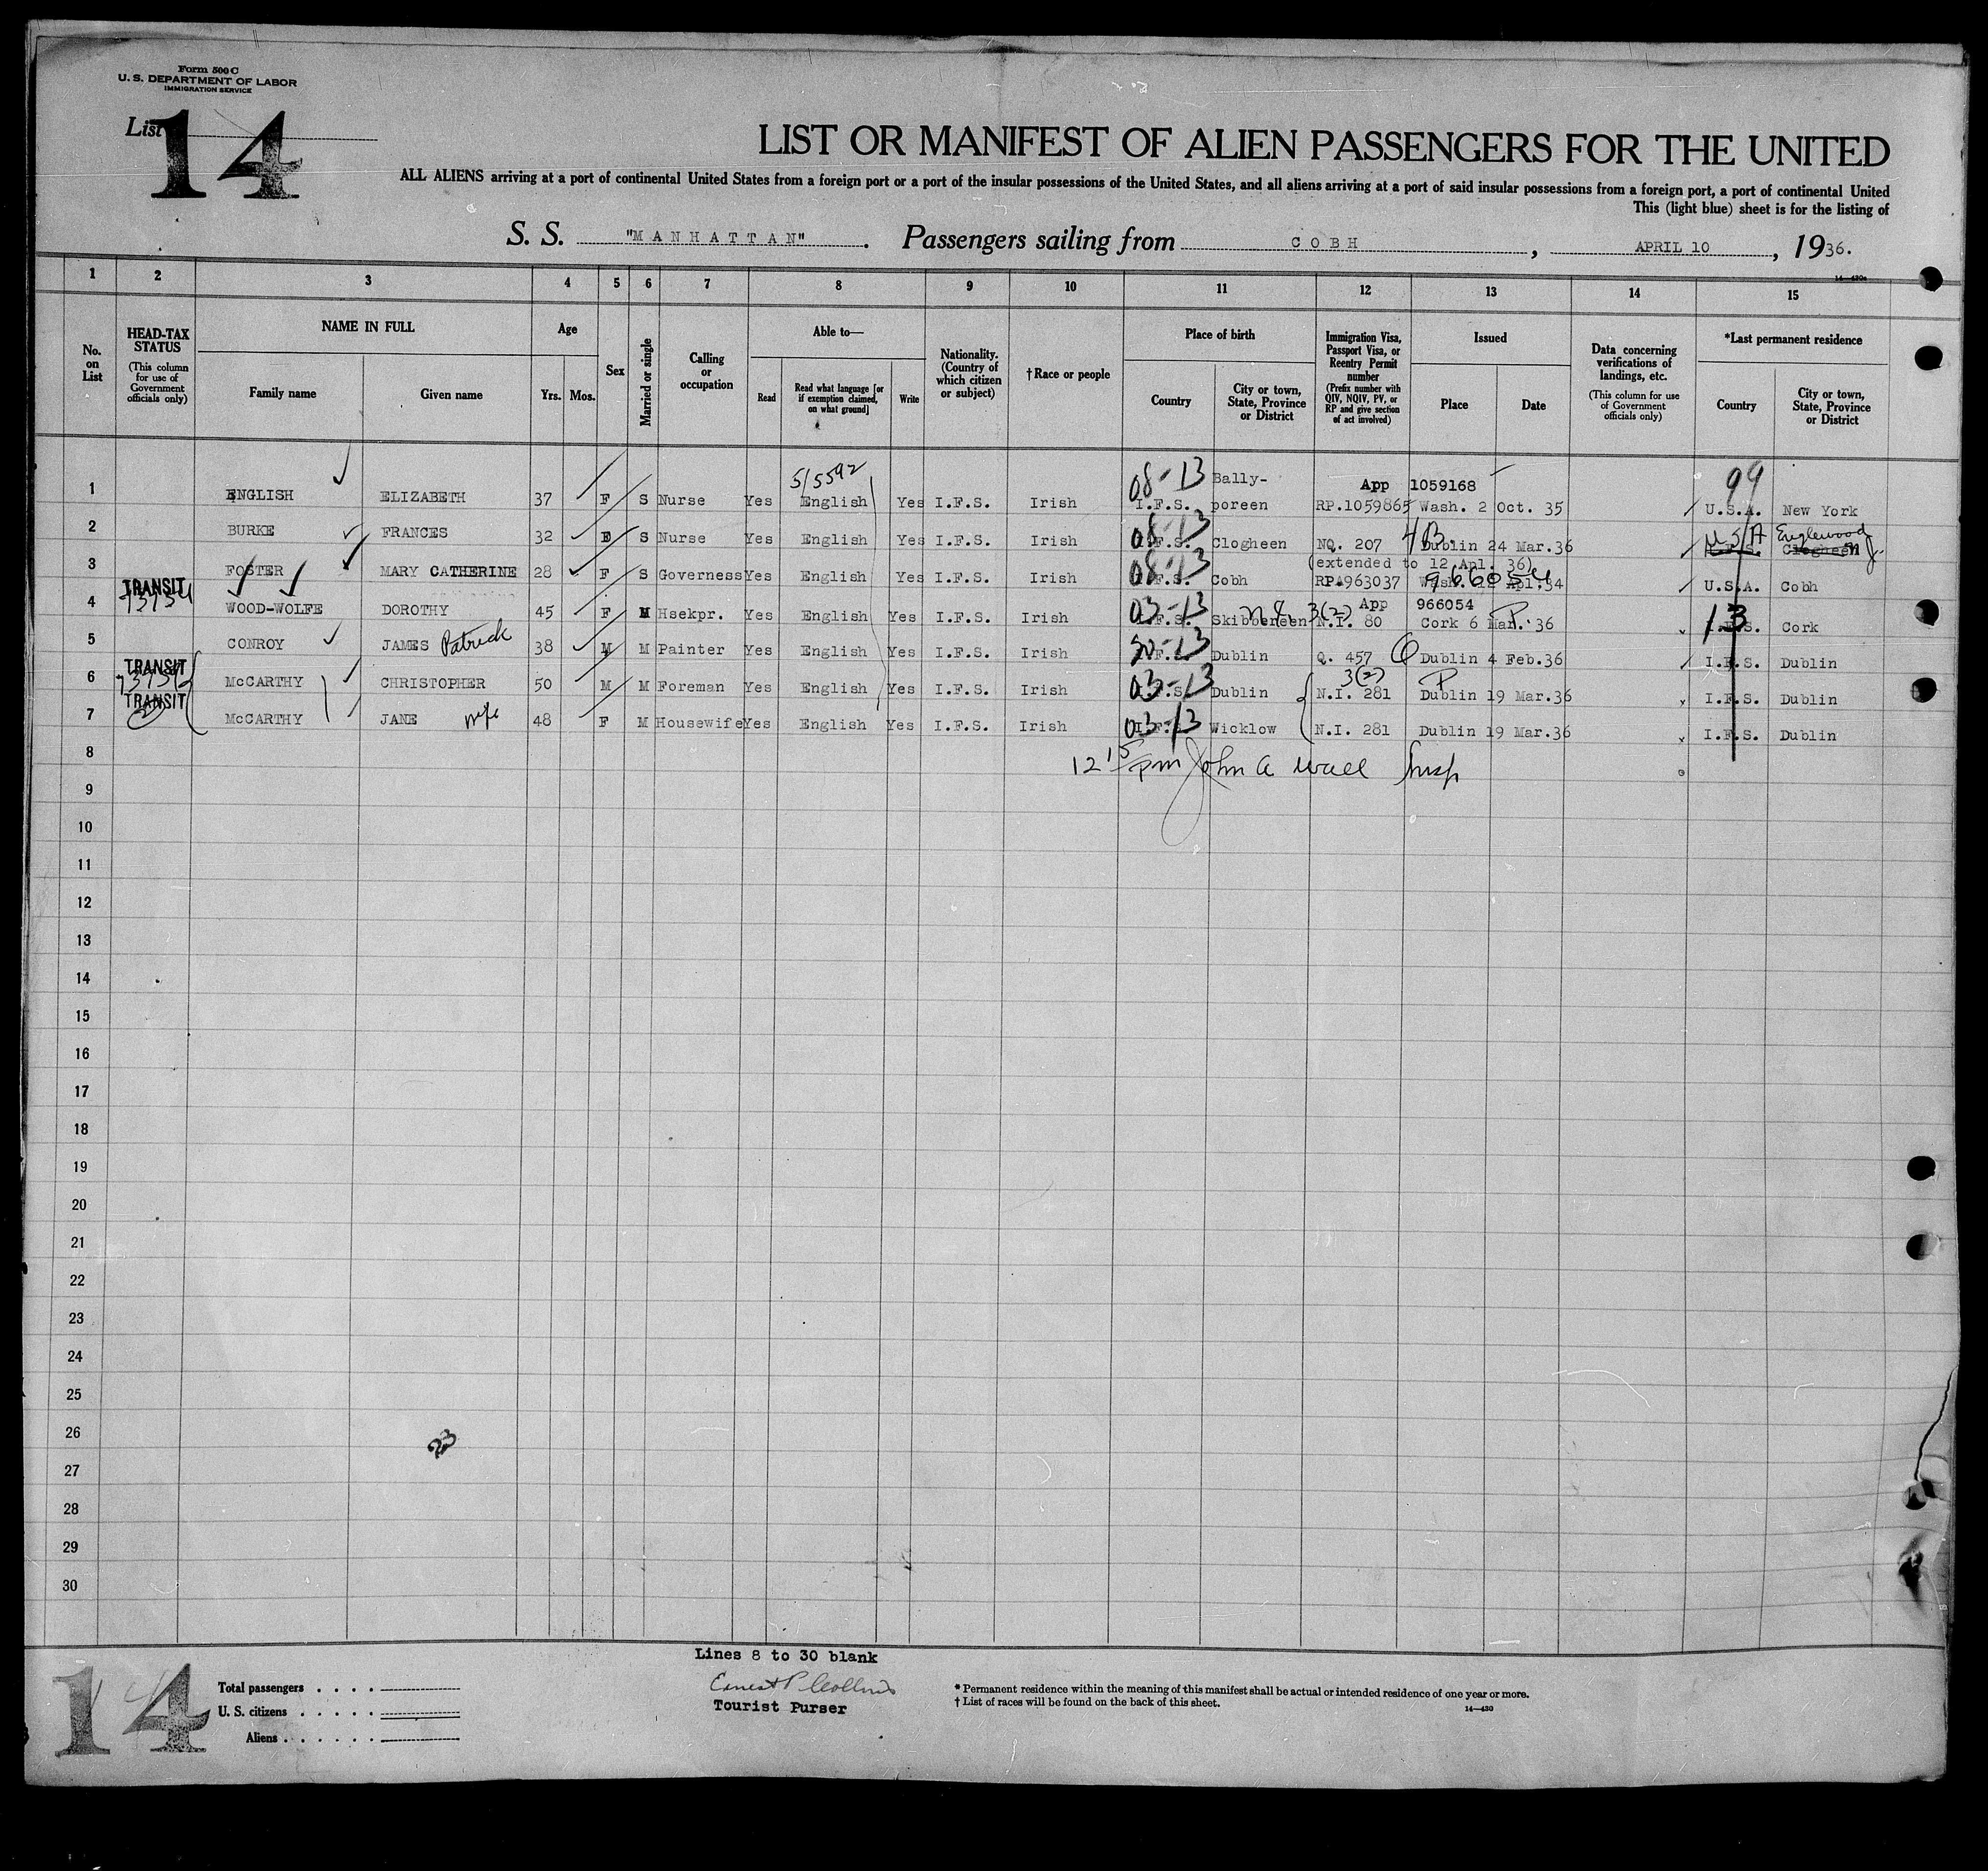 Form 500 C
U. S. DEPARTMENT OF LABOR
IMMIGRATION SERVICE
List 14
LIST OR MANIFEST OF ALIEN PASSENGERS FOR THE UNITED
ALL ALIENS arriving at a port of continental United States from a foreign port or a port of the insular possessions of the United States, and all aliens arriving at a port of said insular possessions from a foreign port, a port of continental United
This (light blue) sheet is for the listing of
S. S. "MANHATTAN". Passengers sailing from COBH, APRIL 10, 1936.
14—430a
1 2 3 4 5 6 7 8 9 10 11 12 13 14 15
No. on List
HEAD-TAX STATUS (This column for use of Government officials only)
NAME IN FULL
Family name Given name
Age
Yrs. Mos.
Sex
Married or single
Calling or occupation
Able to—
Read Read what language [or if exemption claimed, on what ground] Write
Nationality. (Country of which citizen or subject)
†Race or people
Place of birth
Country City or town, State, Province or District
Immigration Visa, Passport Visa, or Reentry Permit number (Prefix number with QIV, NQIV, PV, or RP and give section of act involved)
Issued
Place Date
Data concerning verifications of landings, etc. (This column for use of Government officials only)
*Last permanent residence
Country City or town, State, Province or District
5/5592 08-13 Bally- App 1059168 99
1 ENGLISH ELIZABETH 37 F S Nurse Yes English Yes I.F.S. Irish I.F.S. poreen RP.1059865 Wash. 2 Oct. 35 U.S.A. New York
08-13 4B USA Englewood NJ.
2 BURKE FRANCES 32 F S Nurse Yes English Yes I.F.S. Irish I.F.S. Clogheen NQ. 207 Dublin 24 Mar.36 Clogheen
08-13 (extended to 12 Apl. 36) 966054
3 FOSTER MARY CATHERINE 28 F S Governess Yes English Yes I.F.S. Irish I.F.S. Cobh RP.963037 Wash. 12 Apl.34 U.S.A. Cobh
TRANSIT 03-13 3(2) App 966054 P. 13
4 WOOD-WOLFE DOROTHY 45 F M Hsekpr. Yes English Yes I.F.S. Irish I.F.S. Skibbereen N.I. 80 Cork 6 Mar. 36 I.F.S. Cork
5 CONROY JAMES Patrick 38 M M Painter Yes English Yes I.F.S. Irish I.F.S. Dublin Q. 457 Dublin 4 Feb.36 I.F.S. Dublin
TRANSIT 03-13 3(2) P
6 McCARTHY CHRISTOPHER 50 M M Foreman Yes English Yes I.F.S. Irish I.F.S. Dublin N.I. 281 Dublin 19 Mar.36 I.F.S. Dublin
TRANSIT 2 03-13
7 McCARTHY JANE wife 48 F M Housewife Yes English Yes I.F.S. Irish I.F.S. Wicklow N.I. 281 Dublin 19 Mar.36 I.F.S. Dublin
8 12 15 pm John A Wall Insp
9
10
11
12
13
14
15
16
17
18
19
20
21
22
23
24
25
26
23
27
28
29
30
Lines 8 to 30 blank
14
Total passengers
U. S. citizens
Aliens
Ernest P Collins
Tourist Purser
* Permanent residence within the meaning of this manifest shall be actual or intended residence of one year or more.
† List of races will be found on the back of this sheet.
14—430